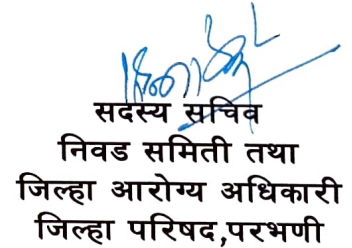 सदस्य सचिव
निवड समिती तथा
जिल्हा आरोग्य अधिकारी
जिल्हा परिषद,परभणी